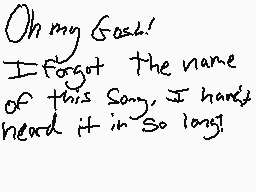 Oh my Gosh!
I forgot the name
of this song, I hand't
heard it in so long!